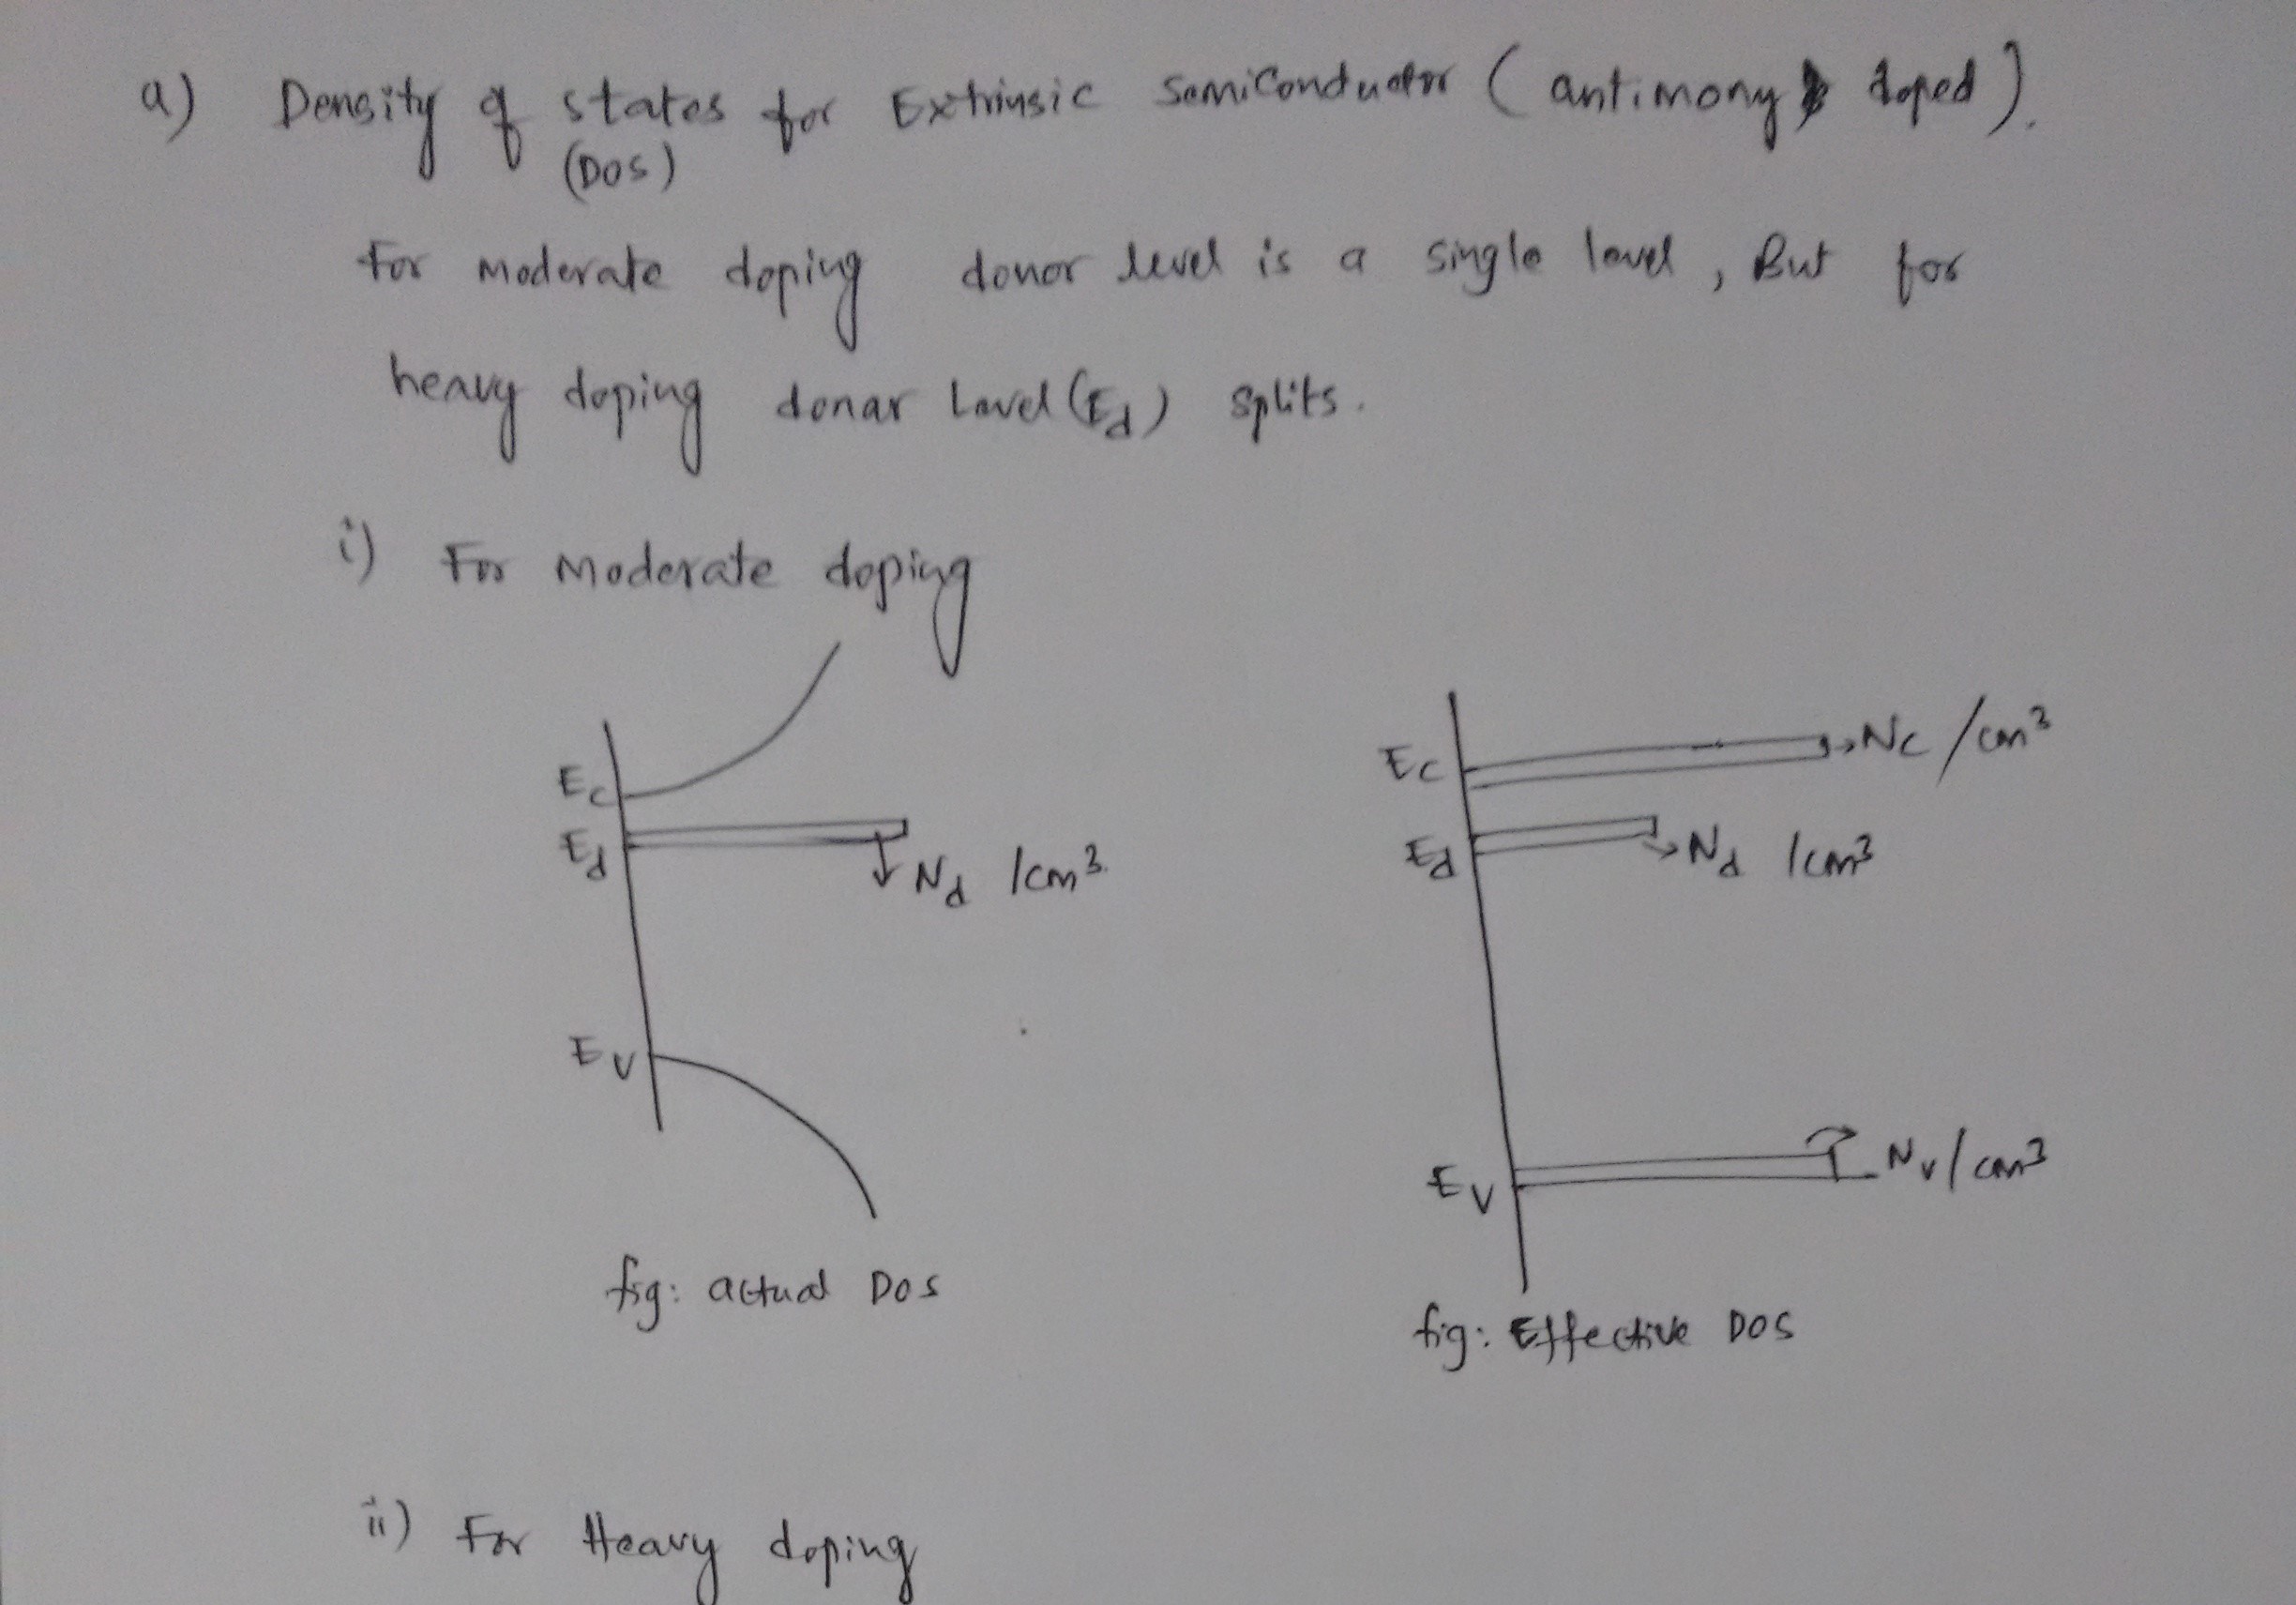 a) Density of states for Extrinsic Semiconductor (antimony doped).
(DOS)
For moderate doping donor level is a single level, But for
heavy doping donar Level (Ed) splits.
i) For Moderate doping
Ec
Ed
Nd /cm3
Ev
fig: actual DOS
Ec
Nc /cm3
Ed
Nd /cm3
Ev
Nv/cm3
fig: Effective DOS
ii) For Heavy doping